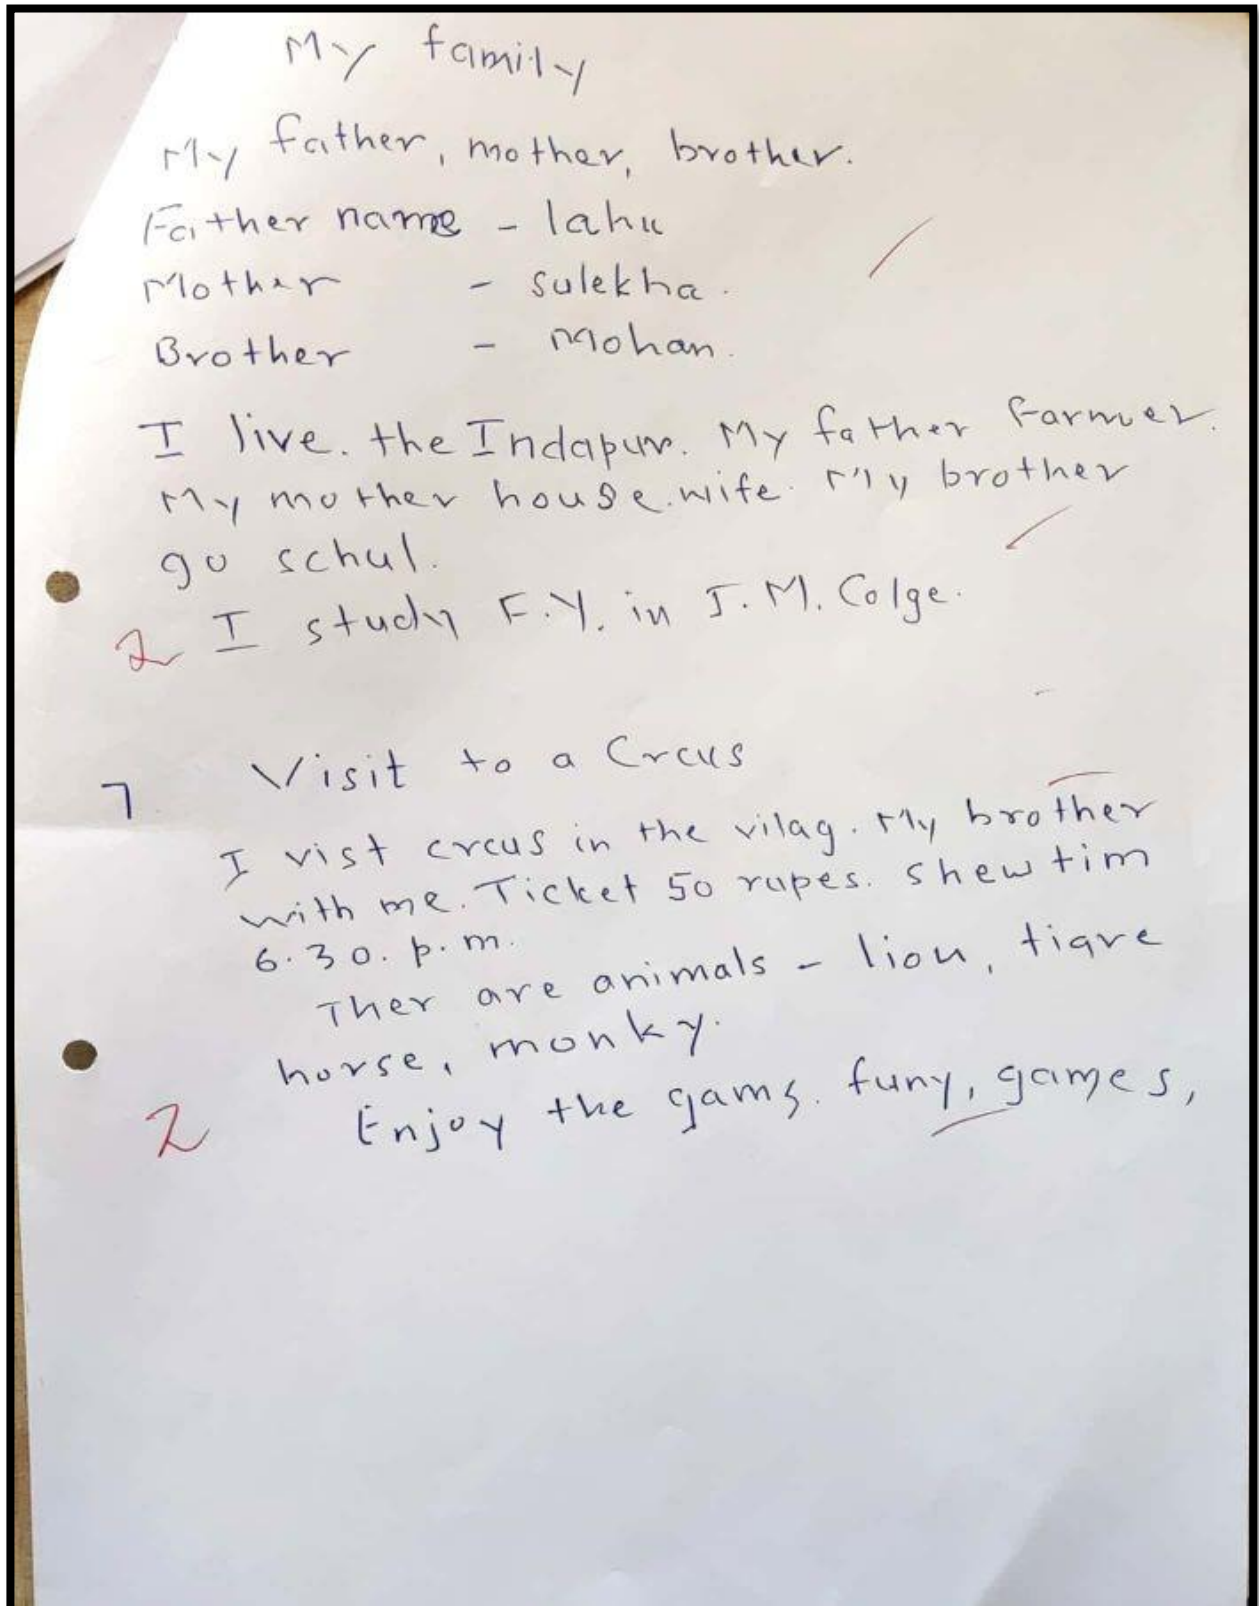 My family
My father, mother, brother.
Father name - lahu
Mother - sulekha.
Brother - Mohan.
I live. the Indapur. My father Farmer.
My mother house.wife. My brother
go schul.
2 I study F.Y. in J.M. Colge.
7 Visit to a Crcus
I vist crcus in the vilag. My brother
with me. Ticket 50 rupes. shew tim
6.30. p.m.
Ther are animals - lion, tigre
horse, monky.
2 Enjoy the gams. funy, games,